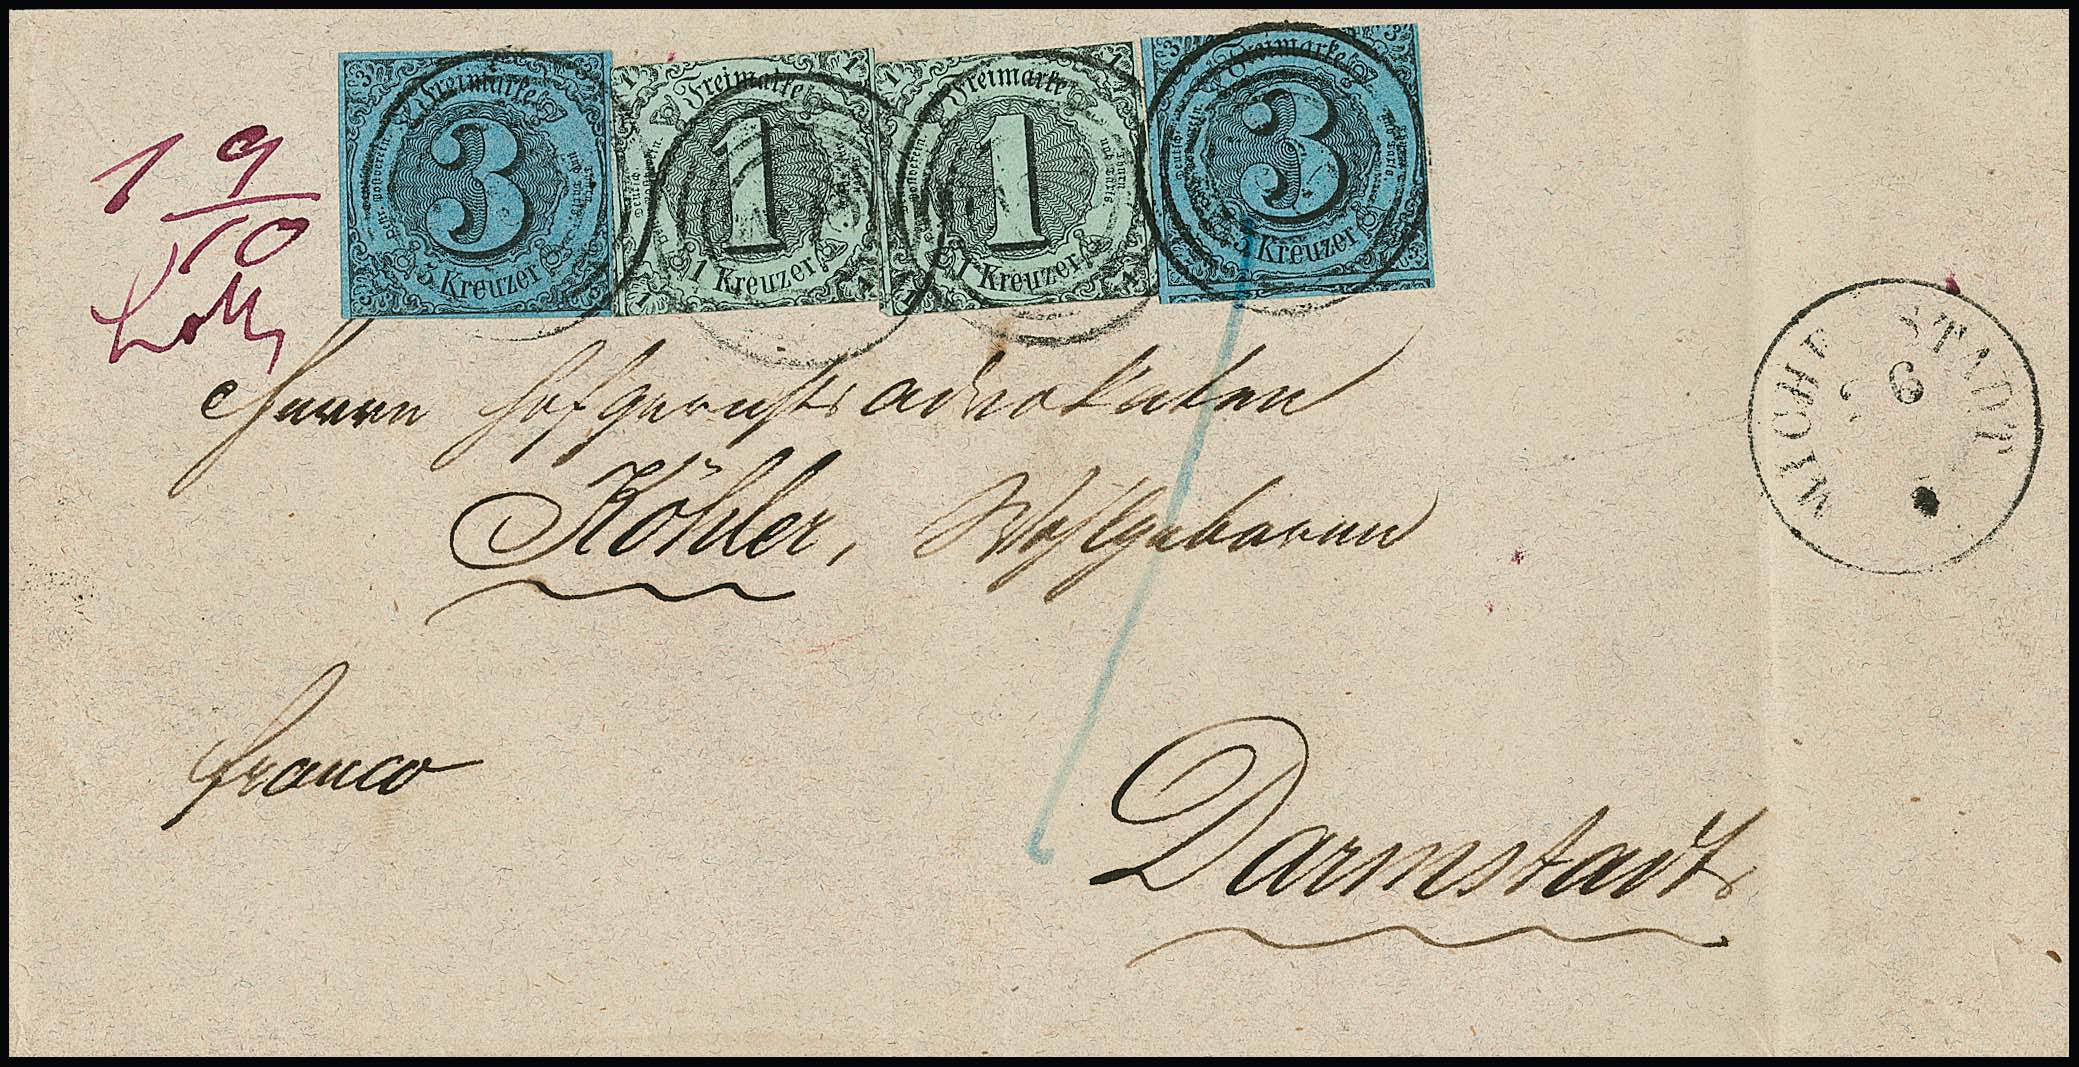 3 3 3
Freimarke
3
3 Kreuzer
1 1 1 1
Freimarke
1
1 Kreuzer
1 1 1 1
Freimarke
1
1 Kreuzer
3 3 3
Freimarke
3
3 Kreuzer
1 9/10
Loth
Herrn Hofgerichtsadvokaten
Köhler, Wohlgeboren
franco
Darmstadt
MICHE STADT
6